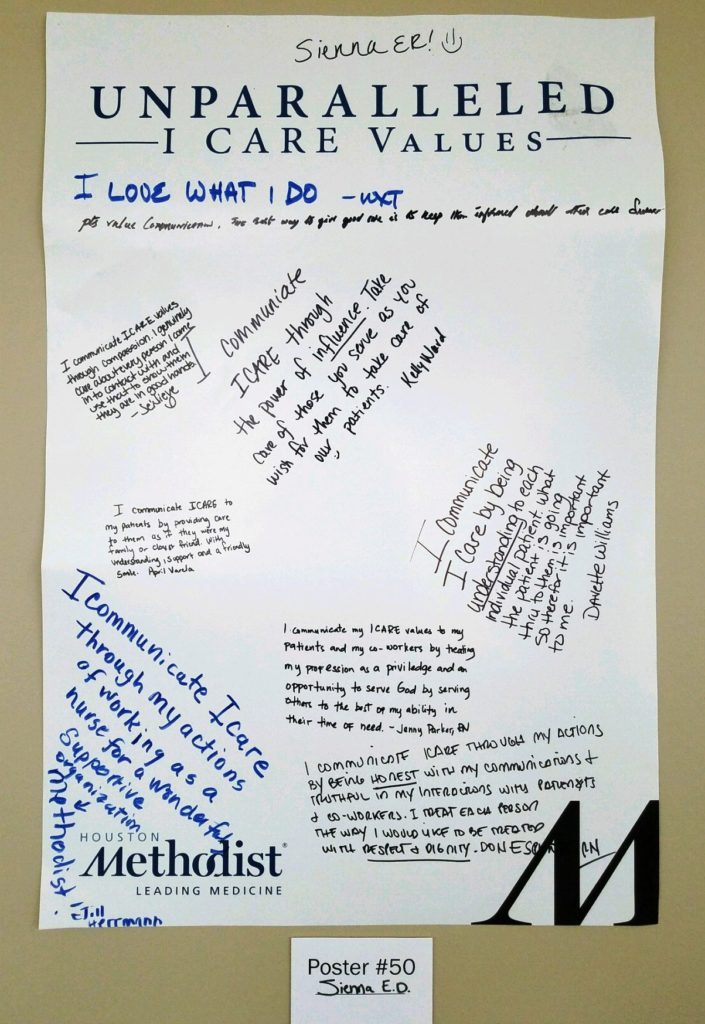 Sienna ER!
UNPARALLELED
I CARE VALUES
I LOVE WHAT I DO - WXT
pts value Communication. The best way to give good care is to keep them informed about their care
I communicate ICARE values
through compassion. I genuinely
care about every person I come
in to contact with and
use that to show them
they are in good hands.
I communiate
ICARE through
the power of influence. Take
care of those you serve as you
wish for them to take care of
our patients. Kelly Ward
I communicate
I Care by being
understanding to each
individual patient. what
the patient is going
thru to them is important
so therefor it is important
to me.
Davette Williams
I communicate ICARE to
my patients by providing care
to them as if they were my
family or close friend. With
understanding, support and a friendly
smile. April Varela
I communicate Icare
through my actions
of working as a
nurse for a wonderful
Supportive
organization
methodist!
Jill
Herrmann
I communicate my ICARE values to my
patients and my co-workers by treating
my profession as a priviledge and an
opportunity to serve God by serving
others to the best of my ability in
their time of need. - Jenny Parker, RN
I COMMUNICATE ICARE THROUGH MY ACTIONS
BY BEING HONEST WITH MY COMMUNICATIONS &
TRUTHFUL IN MY INTERACTIONS WITH PATIENTS
& CO-WORKERS. I TREAT EACH PERSON
THE WAY I WOULD LIKE TO BE TREATED
WITH RESPECT & DIGNITY. DON RN
HOUSTON
Methodist®
LEADING MEDICINE
M
Poster #50
Sienna E.D.